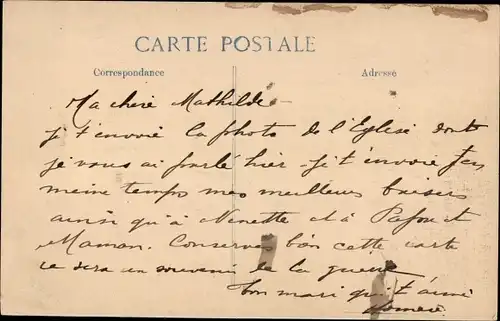 CARTE POSTALE
Correspondance
Adresse
Ma chere Mathilde
je t'envoie la photo de l'Eglise dont
je vous ai parlé hier je t'envoie en
meme temps mes meilleurs baisers
ainsi qu'à Ninette et à et
Maman. Conserves bien cette carte
ce sera un souvenir de la guerre
Ton mari qui t'aime